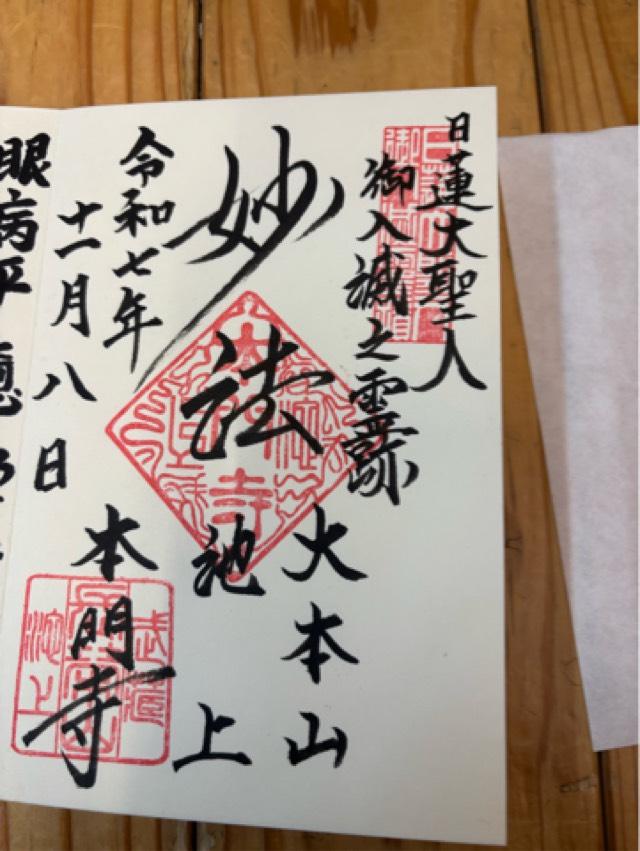 日蓮大聖人
御入滅之霊跡
大本山
妙法
池上
本門寺
令和七年
十一月八日
眼病平癒